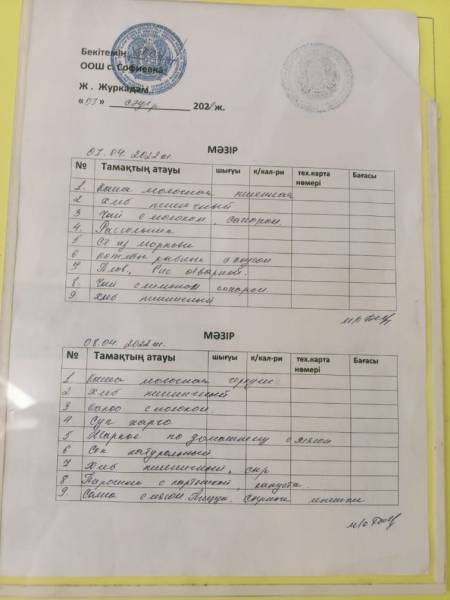 Бекітемін
ООШ с. Софиевка
Ж . Журкадам
«07» сәуір 202 ж.
МӘЗІР
07.04 2022ж.
№ Тамақтың атауы шығуы к/кал-ри тех.карта нөмері Бағасы
1. Каша молочная пшенная
2 Хлеб пшеничный
3 Чай с молоком, сахаром
4. Рассольник
5 Сок из моркови
6 рыбная
7 Плов, Рис отварной.
8. Чай с лимоном сахаром
9 Хлеб пшеничный
МӘЗІР
08.04 2022ж.
№ Тамақтың атауы шығуы к/кал-ри тех.карта нөмері Бағасы
1 Каша молочная геркулес
2 Хлеб пшеничный
3 Какао с молоком
4 Суп харчо
5 Жаркое по домашнему с мясом
6 Сок натуральный
7 Хлеб пшеничный, сыр
8 Пирожки с картошкой, капуста.
9 с мясом